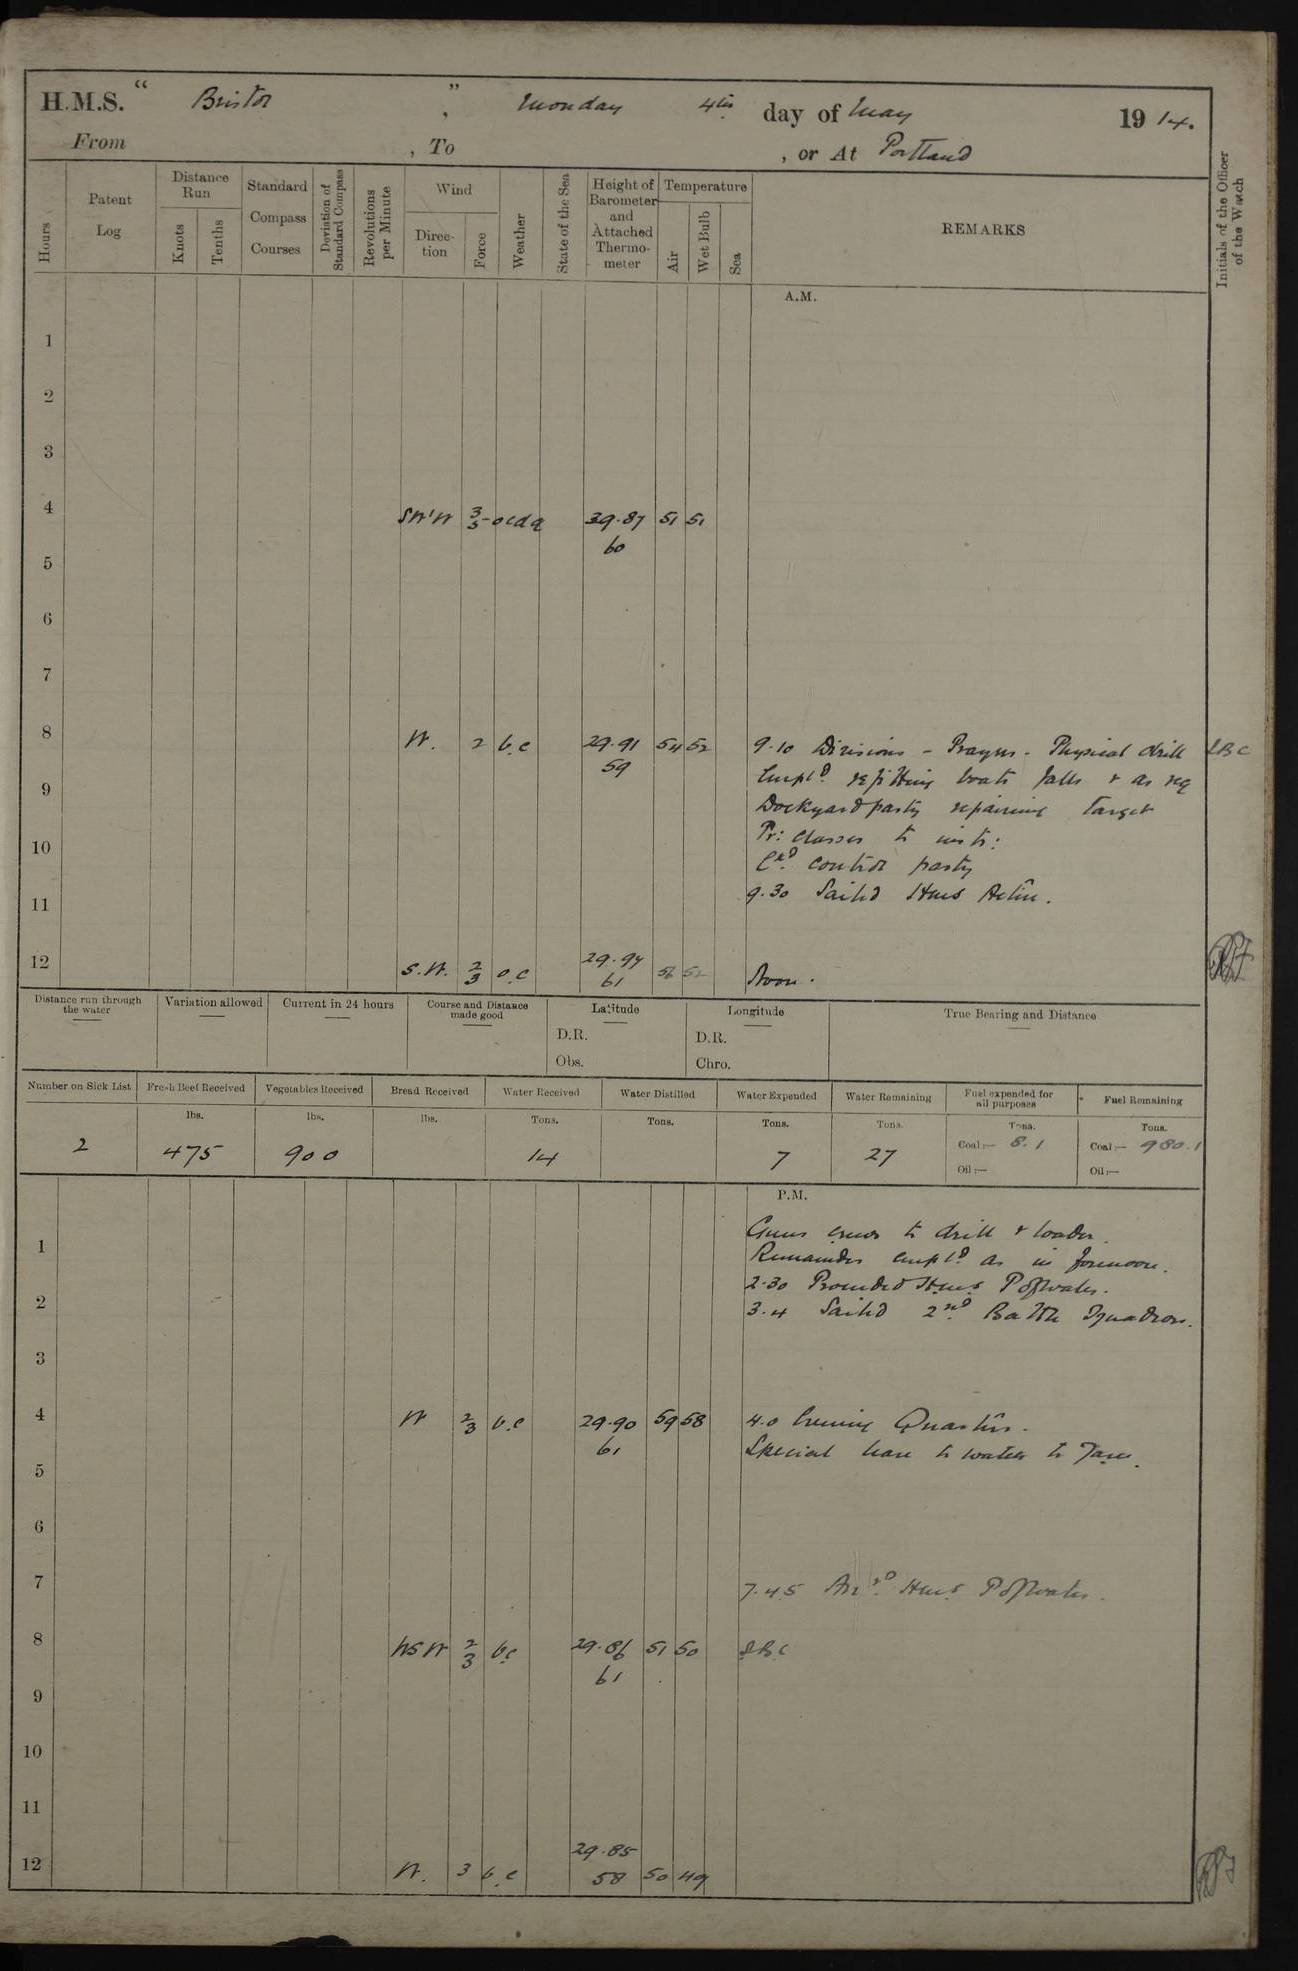 H.M.S. “ Bristol ” , Monday 4th day of May 1914.
From , To , or At Portland
Hours
Patent Log
Distance Run
Knots
Tenths
Standard Compass Courses
Deviation of Standard Compass
Revolutions per Minute
Wind
Direction
Force
Weather
State of the Sea
Height of Barometer and Attached Thermometer
Temperature
Air
Wet Bulb
Sea
REMARKS
Initials of the Officer of the Watch
A.M.
1
2
3
4 SW'W 3-5 ocdq 29.87 51 51
60
5
6
7
8 W. 2 b.c 29.91 54 52 9.10 Divisions - Prayers - Physical drill
59
Empld. refitting boats falls & as req
9 Dockyard party repairing target
Pr: classes to instr:
10 Exd. control party
9.30 Sailed HMS Active.
11
12 S.W. 2/3 o.c 29.94 56 52 Noon.
61
Distance run through the water
Variation allowed
Current in 24 hours
Course and Distance made good
Latitude
D.R.
Obs.
Longitude
D.R.
Chro.
True Bearing and Distance
Number on Sick List
Fresh Beef Received
Vegetables Received
Bread Received
Water Received
Water Distilled
Water Expended
Water Remaining
Fuel expended for all purposes
Fuel Remaining
lbs. lbs. lbs. Tons. Tons. Tons. Tons. Tons. Tons.
2 475 900 14 7 27 Coal:— 8.1 Coal:— 980.1
Oil:— Oil:—
P.M.
Guns crews to drill & loader.
1 Remainder empld. as in forenoon.
2.30 Proceeded HMS
2 3.4 Sailed 2nd. Battle Squadron.
3
4 W 2/3 b.c 29.90 59 58 4.0 Evening Quarters.
61
Special leave to watch to 7am.
5
6
7 7.45 Arrd. HMS
8 WSW 2/3 b.c 29.86 51 50
61
9
10
11
12 W. 3 b.c 29.85 50 49
58